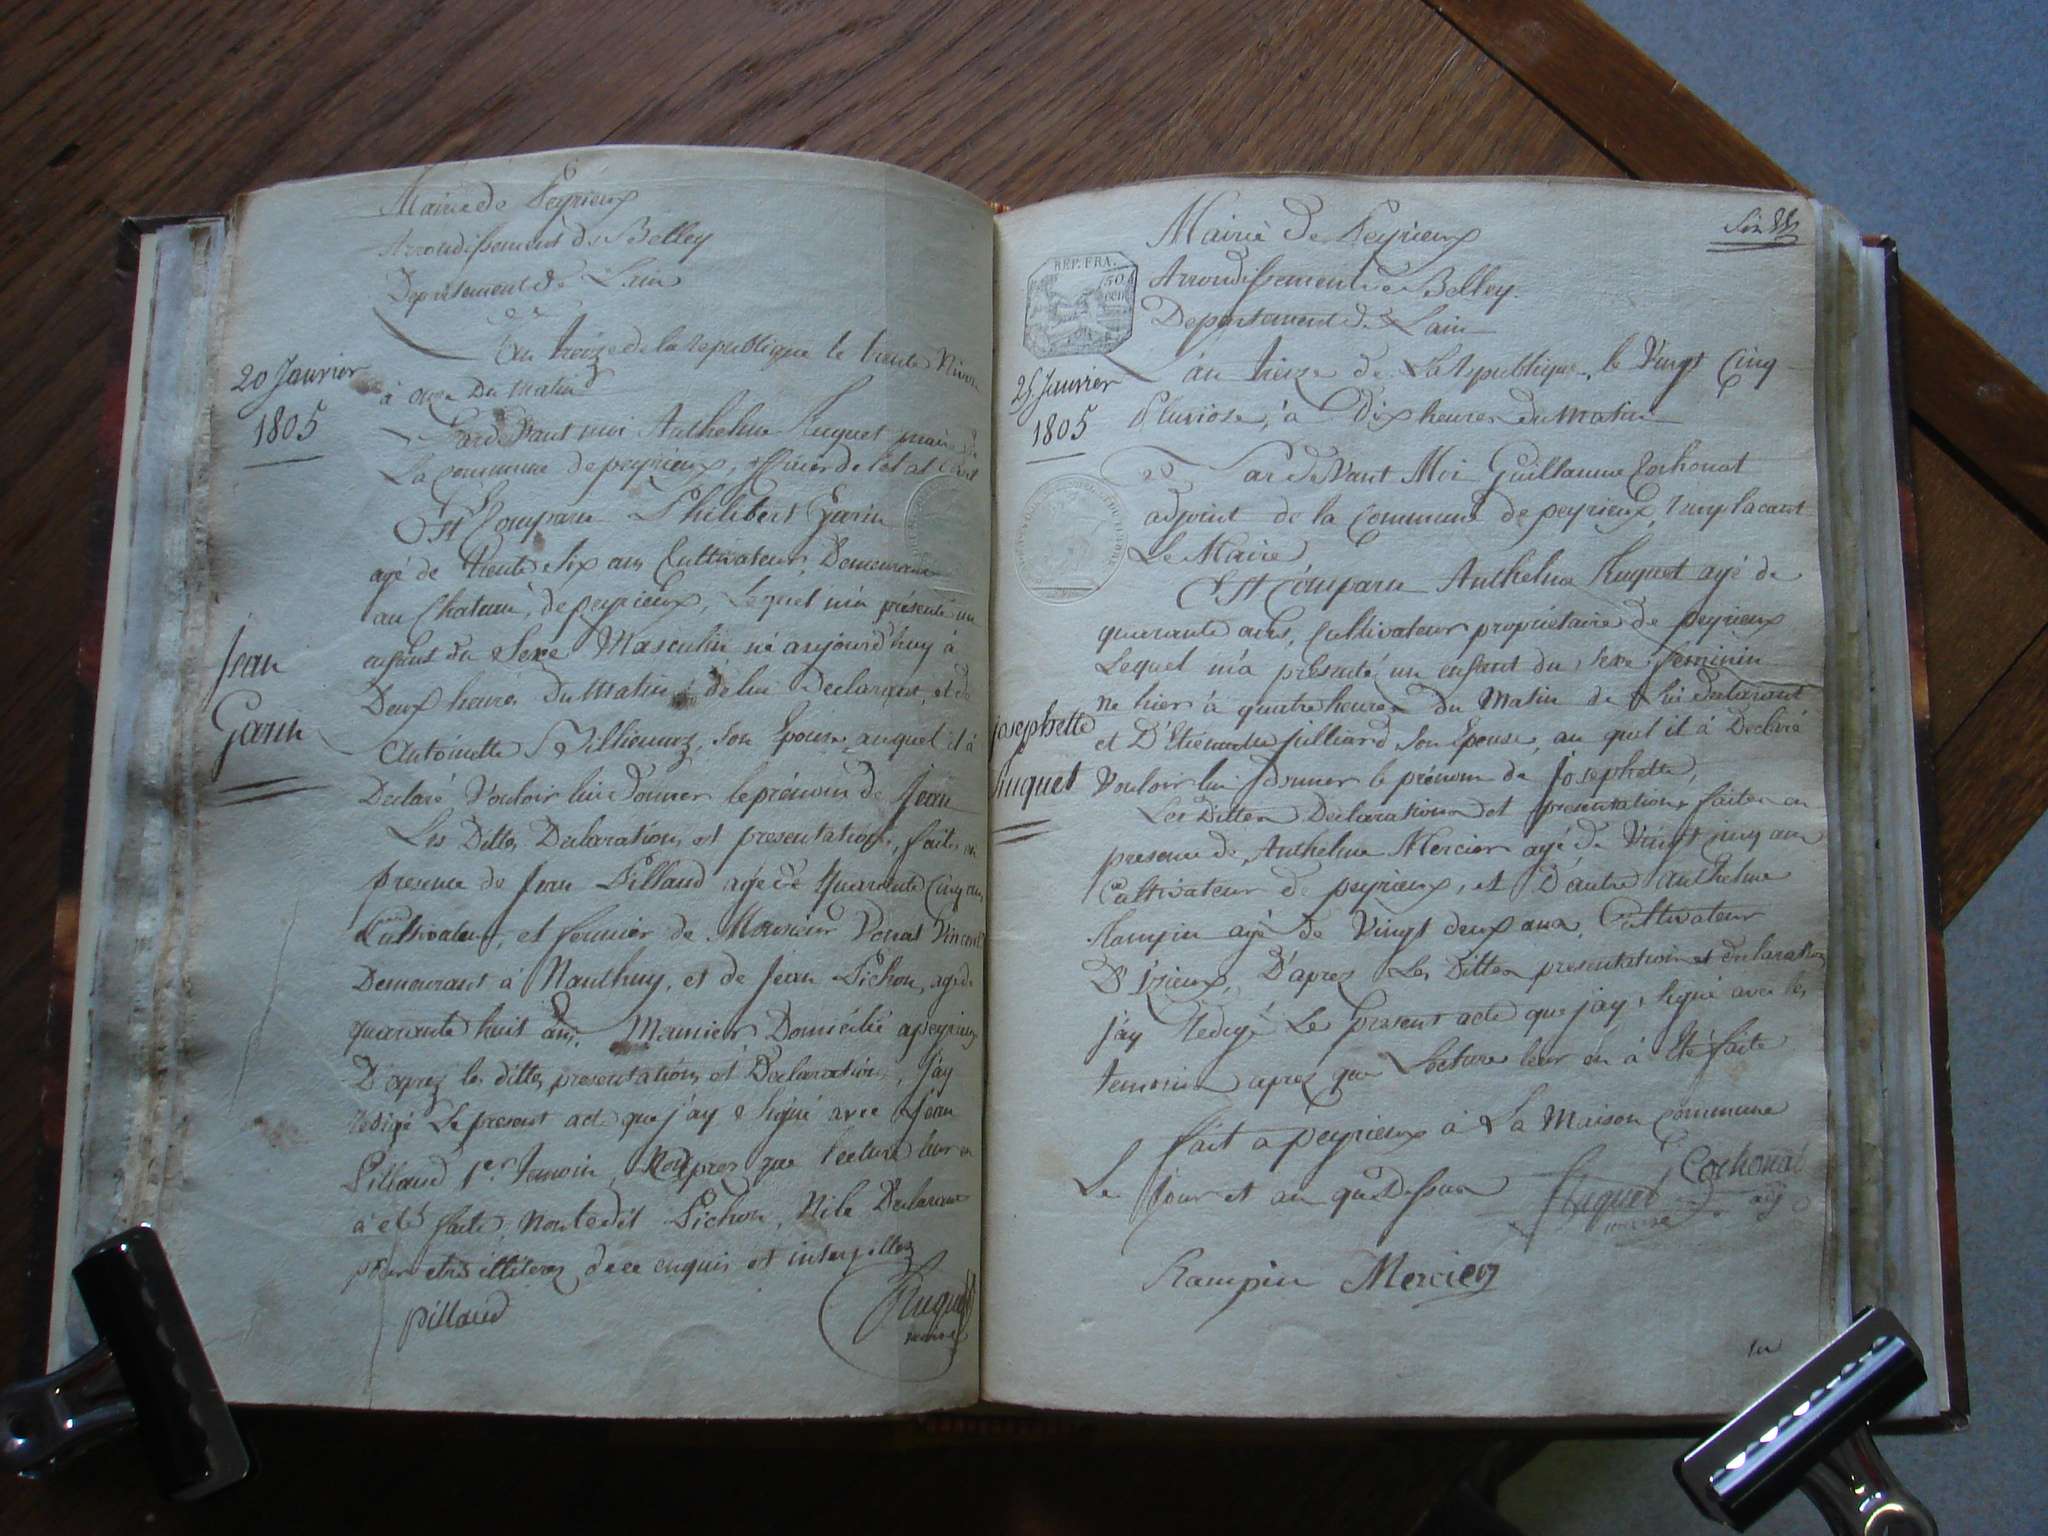 Mairie de Peyrieux
Arrondissement de Belley
Departement de Lain
An treize de la republique le trente Nivose
20 Janvier
1805
à onze Du matin
Pardevant moi Anthelme Huguet maire de
La commune de peyrieux, officier de l'etat Civil
Est Comparu Philibert Garin
agé de trente Six ans Cultivateur, Demeurant
au Chateau, de peyrieux, Lequel m'a présenté un
enfant du Sexe Masculin né aujourd'huy à
Jean
Garin
Deux heures Du Matin, de lui Declarant, et de
Antoinette Son Epouse, auquel il à
Declaré Vouloir lui Donner le prénom de Jean
Les Dittes Declarations et presentations, faites en
presence de Jean Pillaud agé de Quarante Cinq ans
Cultivateur, et fermier de Monsieur Vincent
Demeurant à Nanthuy, et de Jean Pichon, agé de
quarante huit ans, Domicilié a peyrieux
D'aprez les dittes presentations et Declarations, j'ay
redigé Le present acte que j'ay Signé avec Jean
Pillaud 1er temoin, aprez que lecture leur en
à eté faite, Non ledit Pichon, Ni le Declarant
pour etre illiterez de ce enquis et interpellez
pillaud
Huguet
maire
Mairie De Peyrieux
REP. FRA.
50
cen
Arrondissement de Belley.
Departement de Lain
25 Janvier
1805
án treize de La republique, le Vingt Cinq
Pluviose, à Dix heures du Matin
Par devant Moi Guillaume Cochonat
adjoint de la Commune de peyrieux, remplacant
Le Maire
Est Comparu Anthelme Huguet agé de
quarante ans, Cultivateur propriétaire de peyrieux
Lequel m'a présenté un enfant du Sexe feminin
ne hier à quatre heures du Matin de lui declarant
Josephette
Huguet
et D'Etiennette Juilliard Son Epouse, au quel il à Declaré
Vouloir lui donner le prénom de Josephette,
Les Dittes Declarations et presentations faites en
presence de Anthelme Mercier agé de Vingt cinq ans
Cultivateur de peyrieux, et D'autre Anthelme
Rampin agé de Vingt deux ans, Cultivateur
D'aprez Les Dittes presentation et declaration
j'ay redigé Le present acte que j'ay signé avec les
temoins aprez que Lecture leur en à été faite
fait a peyrieux à La Maison Commune
Le Jour et an que Dessus
Huguet
Cochonat
adj
Rampin Mercier